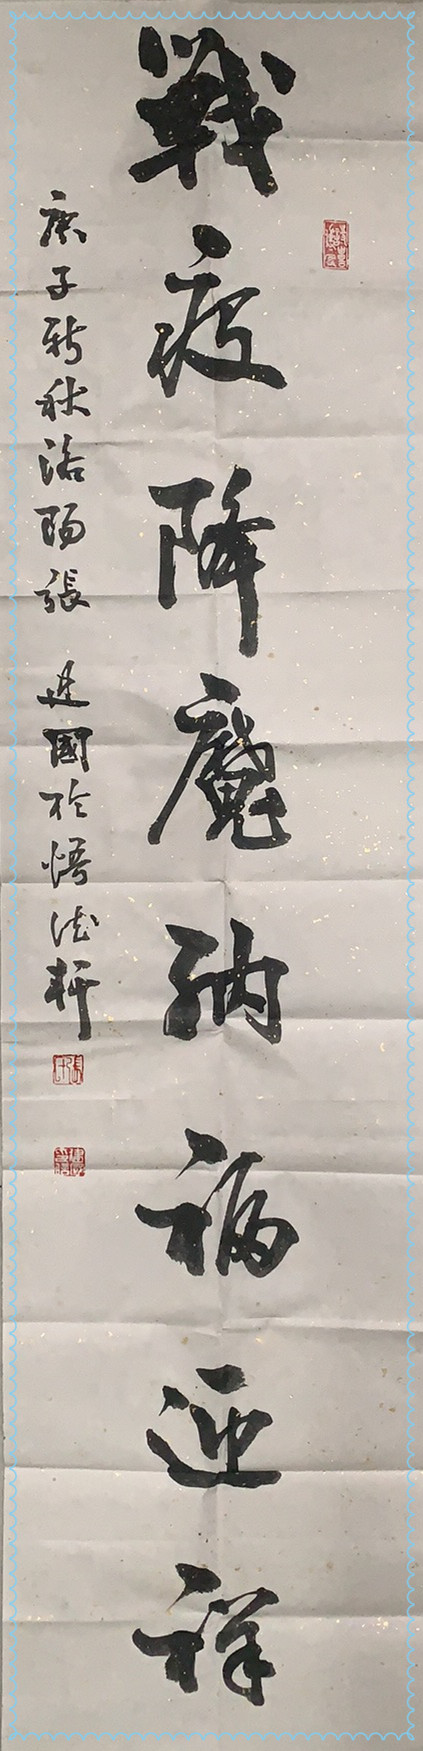 戰疫降魔納福迎祥
庚子新秋洛陽張建國於悟法軒